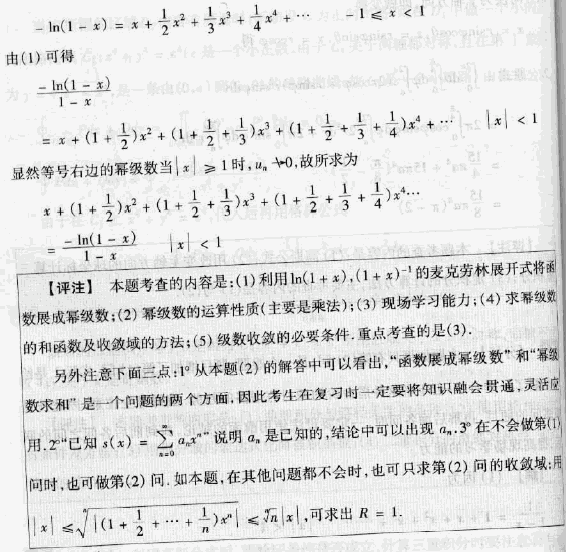 - ln(1 - x) = x + 1/2 x² + 1/3 x³ + 1/4 x⁴ + ⋯   - 1 ≤ x < 1
由(1)可得
-ln(1 - x)/(1 - x)
= x + (1 + 1/2)x² + (1 + 1/2 + 1/3)x³ + (1 + 1/2 + 1/3 + 1/4)x⁴ + ⋯   |x| < 1
显然等号右边的幂级数当|x| ≥ 1时,uₙ ↛ 0,故所求为
x + (1 + 1/2)x² + (1 + 1/2 + 1/3)x³ + (1 + 1/2 + 1/3 + 1/4)x⁴⋯
= -ln(1 - x)/(1 - x)   |x| < 1
【评注】 本题考查的内容是:(1) 利用ln(1 + x),(1 + x)⁻¹的麦克劳林展开式将函
数展成幂级数;(2) 幂级数的运算性质(主要是乘法);(3) 现场学习能力;(4) 求幂级数
的和函数及收敛域的方法;(5) 级数收敛的必要条件. 重点考查的是(3).
另外注意下面三点:1° 从本题(2) 的解答中可以看出,“函数展成幂级数”和“幂级
数求和”是一个问题的两个方面,因此考生在复习时一定要将知识融会贯通,灵活应
用. 2°“已知 s(x) = ∑_{n=0}^{∞} aₙxⁿ”说明 aₙ 是已知的,结论中可以出现 aₙ. 3° 在不会做第(1)
问时,也可做第(2) 问. 如本题,在其他问题都不会时,也可只求第(2) 问的收敛域;用
|x| ≤ ⁿ√|(1 + 1/2 + ⋯ + 1/n)xⁿ| ≤ ⁿ√n|x|,可求出 R = 1.